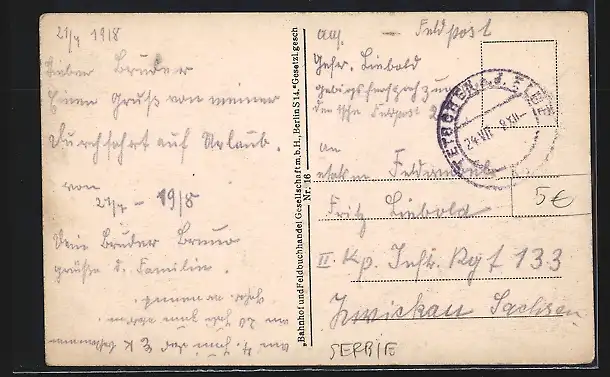 21/7 1918
Lieber Bruder
Einen Gruß von meiner
Durchfahrt auf Urlaub.
von
21/7 – 1918
Dein Bruder Bruno
grüße d. Familie.
am 4. Juni das E K bekommen
am 20 Juni zum
Gefr. ernannt.
„Bahnhof und Feldbuchhandel Gesellschaft m.b.H., Berlin S 14." Gesetzl. gesch.
Nr. 16
Feldpost
Gefr. Liebold
Gebirgsfernsprechzug
Feldpost
TETSCHEN A.d. ELBE
24 VII
XII
An
Fritz Liebold
II Kp. Inftr. Rgt 133
Zwickau Sachsen
5€
SERBIE